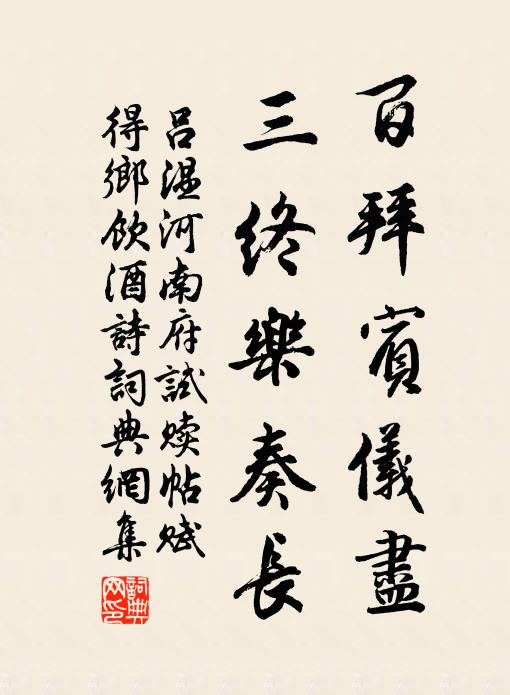 百拜賓儀盡
三終樂奏長
呂溫河南府試贖帖賦
得鄉飲酒詩詞典網集
詞典網印